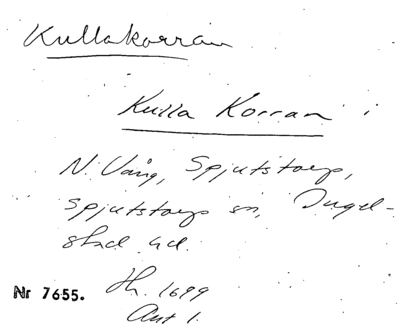 Kullakorran
Kulla Korran i
N. Vång, Spjutstorp,
Spjutstorps sn, Ingel-
stad hd.
Nr 7655. Jb. 1699
Ant 1.